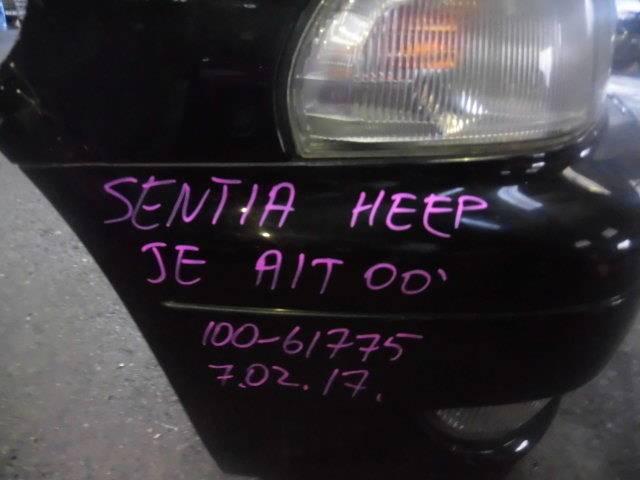 SENTIA HEEP
JE A/T 00'
100-61775
7.02.17.